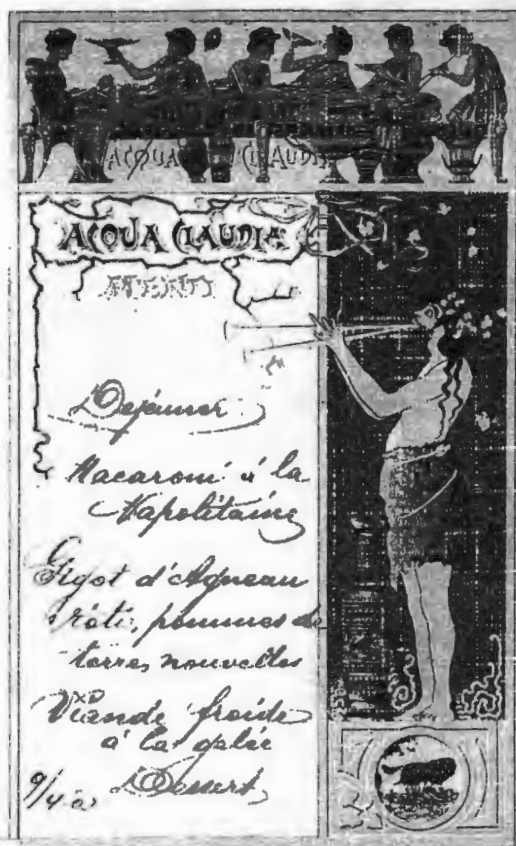 ACQUA CLAUDIA
ACQUA CLAUDIA
MENU
Dejeuner
Macaroni à la
Napolitaine
Gigot d'Agneau
rôti, pommes de
terres nouvelles
Viande froide
à la gelée
Dessert